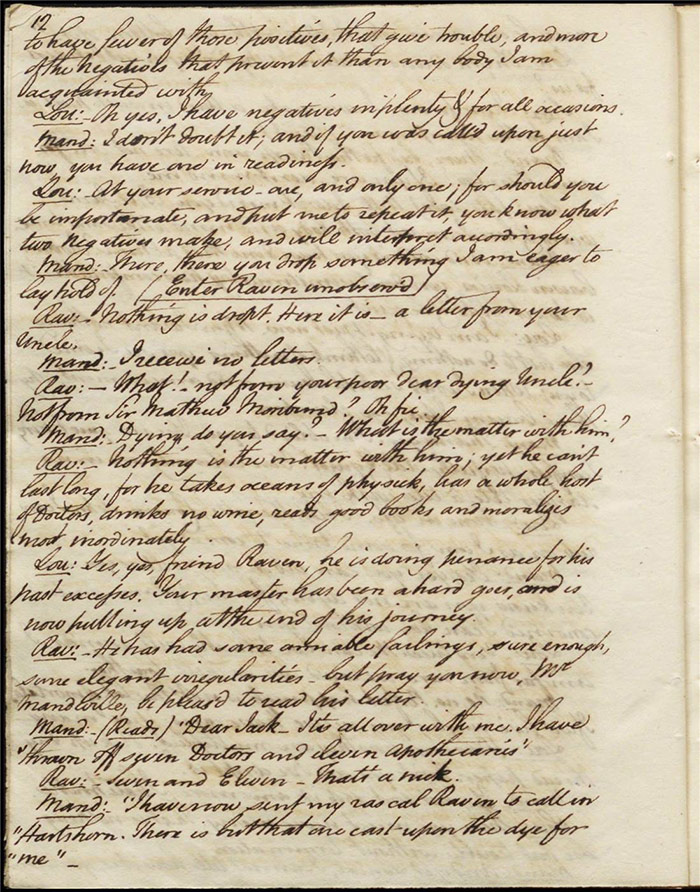 12
to have fewer of those positives, that give trouble, and more
of the negatives that prevent it than any body I am
acquainted with,
Lou:- Oh yes, I have negatives in plenty & for all occasions.
Mand: I don't doubt it; and if you was call'd upon just
now, you have one in readiness.
Lou:- At your service - one, and only one; for should you
be importunate, and put me to repeat it, you know what
two negatives make, and will interpret accordingly.
Mand:- There, there you drop something I am eager to
lay hold of (Enter Raven unobserv'd)
Rav:- Nothing is dropt. Here it is - a letter from your
Uncle.
Mand:- I receive no letters.
Rav:- What! - not from your poor dear dying Uncle? -
Not from Sir Mathew Moribund? Oh fie
Mand:- Dying, do you say? - What is the matter with him?
Rav:- Nothing is the matter with him; yet he can't
last long, for he takes oceans of physick, has a whole host
of Doctors, drinks no wine, reads good books and moralizes
most inordinately.
Lou: Yes, yes, friend Raven, he is doing penance for his
past excesses. Your master has been a hard goer, and is
now pulling up at the end of his journey.
Rav:- He has had some amiable failings, sure enough,
some elegant irregularities - but pray you now, Mr
Mandville, be pleas'd to read his letter.
Mand:- (Reads) "Dear Jack - It is all over with me. I have
"thrown off seven Doctors and eleven Apothecaries"
Rav:- Seven and Eleven - that's a nick.
Mand: "I have now sent my rascal Raven to call in
"Hartshorn. There is but that one cast upon the dye for
"me" -